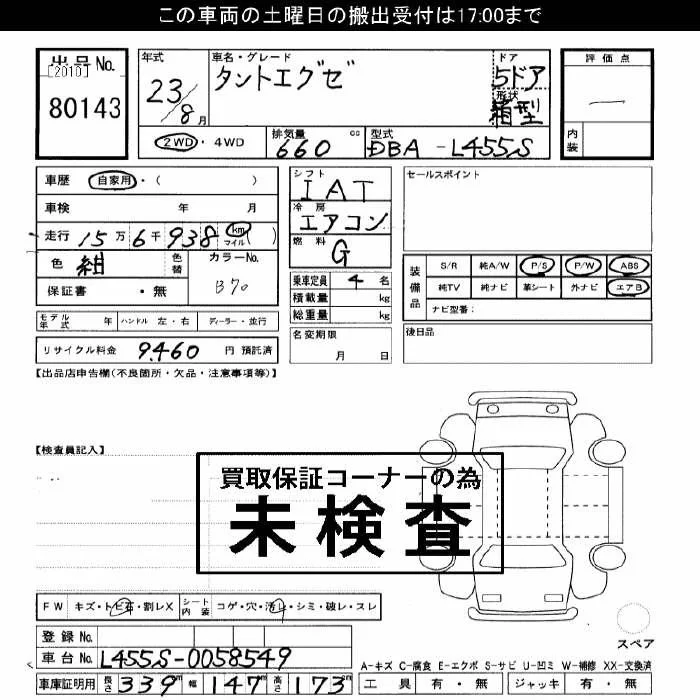 この車両の土曜日の搬出受付は17:00まで
出品No.
[2010]
80143
年式
23/8月
車名・グレード
タントエグゼ
ドア
5ドア
形状
箱型
評価点
―
内装
2WD・4WD
排気量
660 cc
型式
DBA-L455S
車歴 自家用・( )
車検 年 月
走行 15万6千938 km マイル( )
色 紺 色替 カラーNo. B70
保証書 ・無
シフト
IAT
冷房
エアコン
燃料
G
乗車定員 4 名
積載量 kg
総重量 kg
セールスポイント
装備品
S/R 純A/W P/S P/W ABS
純TV 純ナビ 革シート 外ナビ エアB
ナビ型番:
モデル年式 年 ハンドル 左・右 ディーラー・並行
リサイクル料金 9,460 円 預託済
名変期限
月 日
後日品
【出品店申告欄(不良箇所・欠品・注意事項等)】
【検査員記入】
買取保証コーナーの為
未検査
FW キズ・トビ石・割レX シート内装 コゲ・穴・汚レ・シミ・破レ・スレ
登録No.
車台No. L455S-0058549
車庫証明用 長さ 339 幅 147 高さ 173 cm
スペア
A-キズ C-腐食 E-エクボ S-サビ U-凹ミ W-補修 XX-交換済
工具 有・無 ジャッキ 有・無